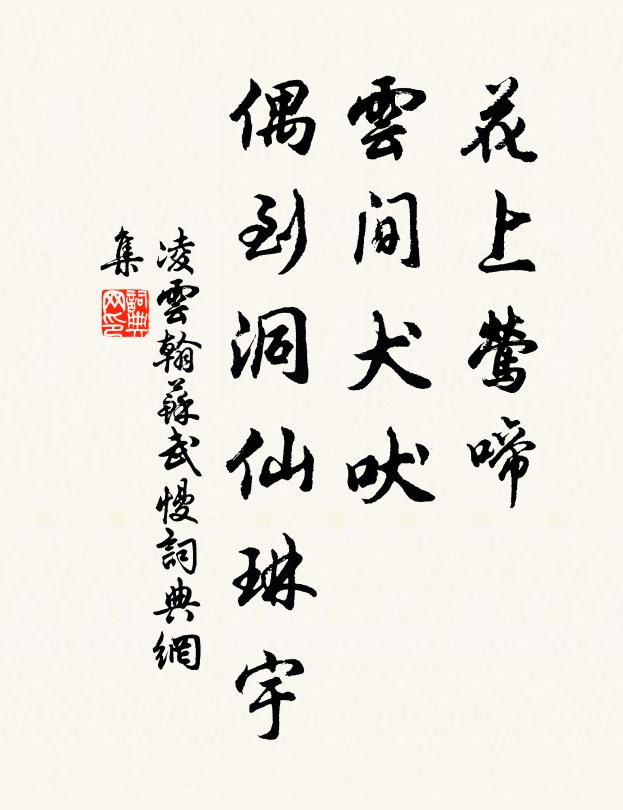 花上鶯啼
雲間犬吠
偶到洞仙琳宇
凌雲翰蘇武慢詞典網
集
詞典
网印